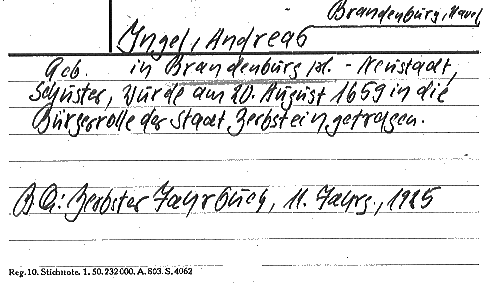 Brandenburg, Havel
Ingel, Andreas
Geb. in Brandenburg - Neustadt,
Schuster, wurde am 20. August 1659 in die
Bürgerrolle der Stadt Zerbst eingetragen.
BQ: Zerbster Jahrbuch, 11. Jahrg., 1925
Reg. 10. Stichnote. 1. 50. 232000. A. 803. S. 4062